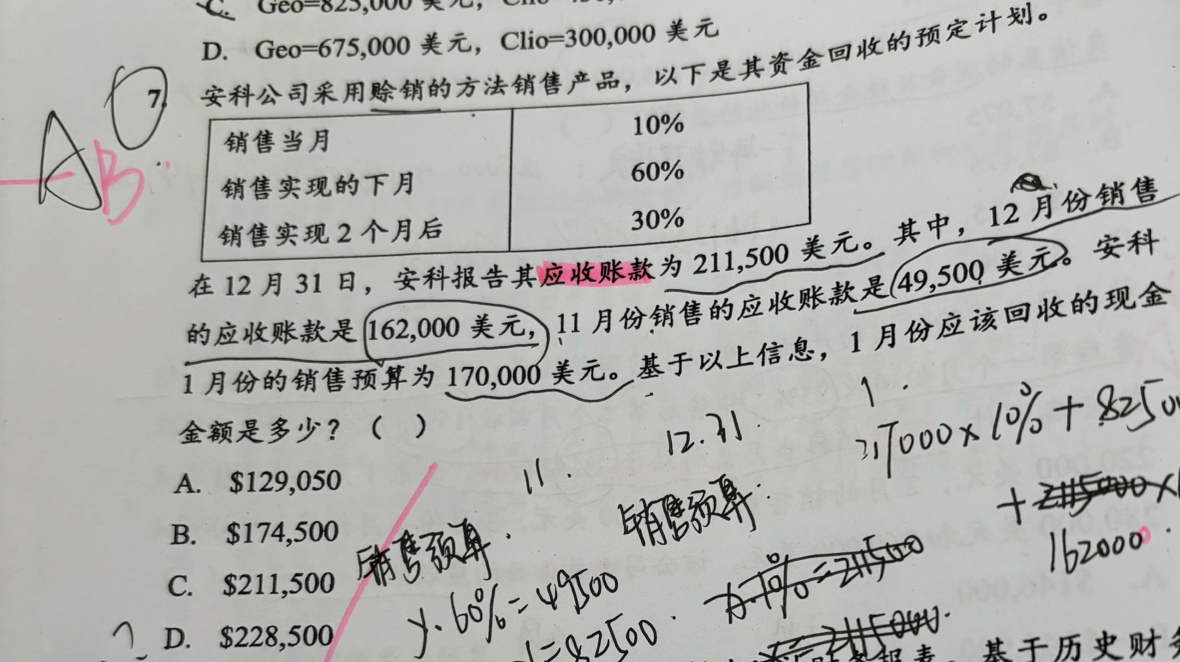 C. Geo=825,000 美元，
D. Geo=675,000 美元，Clio=300,000 美元
7. 安科公司采用赊销的方法销售产品，以下是其资金回收的预定计划。
销售当月 10%
销售实现的下月 60%
销售实现 2 个月后 30%
在 12 月 31 日，安科报告其应收账款为 211,500 美元。其中，12 月份销售
的应收账款是 162,000 美元，11 月份销售的应收账款是 49,500 美元。安科
1 月份的销售预算为 170,000 美元。基于以上信息，1 月份应该回收的现金
金额是多少？（ ）
A. $129,050
B. $174,500
C. $211,500
D. $228,500
A
B
11.
12.31.
1.
销售预算.
销售预算.
y.60%=49500
=82500.
162000
基于历史财务